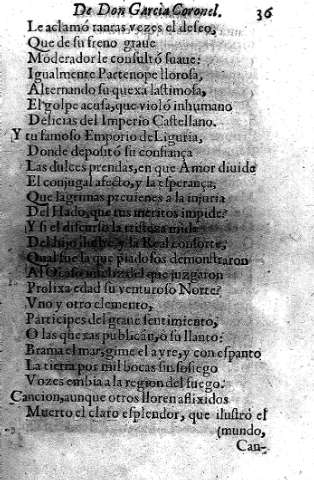 De Don Garcia Coronel. 36
Le aclamò tantas vezes el desseo,
Que de su freno graue
Moderador le consultò suaue:
Igualmente Partenope llorosa,
Alternando su quexa lastimosa,
El golpe acusa, que violò inhumano
Delicias del Imperio Castellano.
Y tu famoso Emporio de Liguria,
Donde depositò su confiança
Las dulces prendas, en que Amor diuide
El conjugal afecto, y la esperança,
Que lagrimas preuienes a la injuria
Del Hado, que tus meritos impide?
Y si el discurso la tristeza mide
Del hijo ilustre, y la Real consorte,
Qual fue la que piadosos demonstraron
Al Ocaso del que juzgaron
Prolixa edad su venturoso Norte?
Vno y otro elemento,
Participes del graue sentimiento,
O las quexas publican, ò su llanto:
Brama el mar, gime el ayre, y con espanto
La tierra por mil bocas sin sosiego
Vozes embia a la region del fuego.
Cancion, aunque otros lloren aflixidos
Muerto el claro esplendor, que ilustrò el
(mundo,
Can-